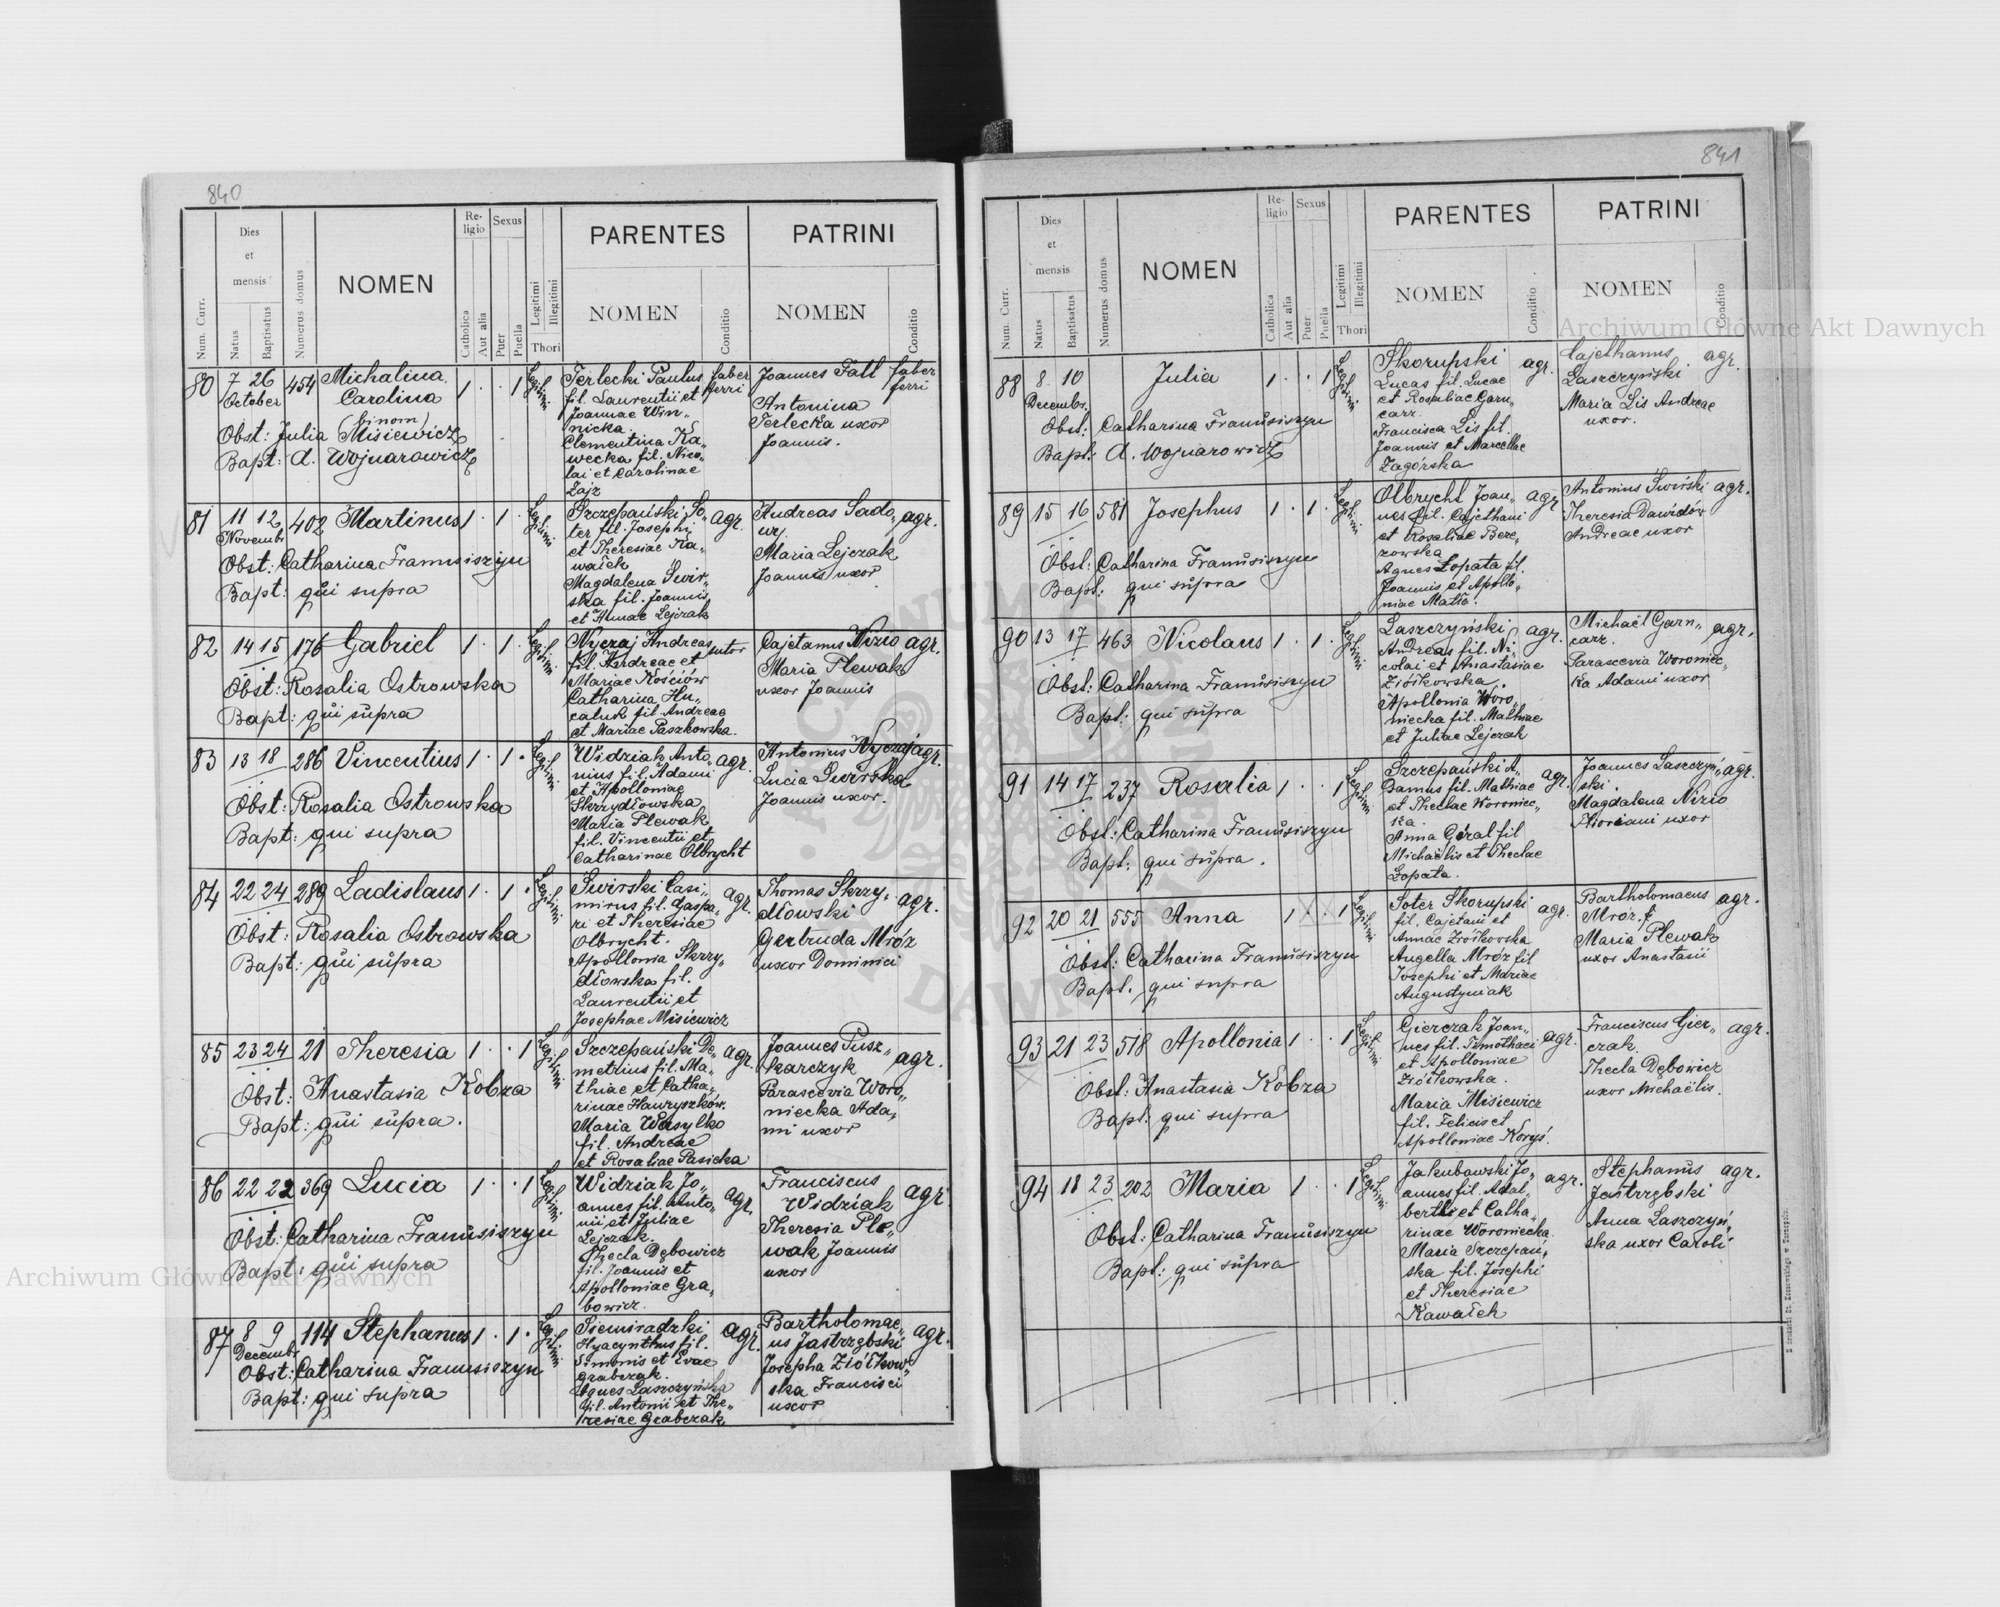 840
Num. Curr.
Dies
et
mensis
Natus
Baptisatus
Numerus domus
NOMEN
Religio
Catholica
Aut alia
Sexus
Puer
Puella
Legitimi
Illegitimi
Thori
PARENTES
NOMEN
Conditio
PATRINI
NOMEN
Conditio
80 7 26 454 Michalina, 1 . . 1 Legitimi
October Carolina
(binom)
Obst: Julia Misiewicz
Bapt: A. Wojnarowicz
Terlecki Paulus faber
fil. Laurentii et ferri
Joannae Win-
nicka.
Clementina Ka-
wecka fil. Nico-
lai et Carolinae
Zajz
Joannes Fatt faber
ferri
Antonina
Terlecka uxor
Joannis.
81 11 12 402 Martinus 1 . 1 . Legitimi
Novembr
Obst: Catharina Franusiszyn
Bapt: qui supra
Szczepański So- agr.
ter fil. Josephi
et Theresiae Ka-
wałek
Magdalena Swir-
ska fil. Joannis
et Annae Lejczak
Andreas Sado- agr.
wy
Maria Lejczak
Joannis uxor
82 14 15 176 Gabriel 1 . 1 . Legitimi
Obst: Rosalia Ostrowska
Bapt: qui supra
Nyczaj Andreas sutor
fil. Andreae et
Mariae Kościów
Catharina Hu-
caluk fil. Andreae
et Mariae Paszkowska.
Cajetanus Nizio agr.
Maria Plewak
uxor Joannis
83 13 18 286 Vincentius 1 . 1 . Legitimi
Obst: Rosalia Ostrowska
Bapt: qui supra
Widziak Anto- agr.
nius fil. Adami
et Apolloniae
Skrzydłowska
Maria Plewak
fil. Vincentii et
Catharinae Olbrycht
Antonius Nyczaj agr.
Lucia Świrska
Joannis uxor.
84 22 24 289 Ladislaus 1 . 1 . Legitimi
Obst: Rosalia Ostrowska
Bapt: qui supra
Swirski Casi- agr.
mirus fil. Gaspa-
ri et Theresiae
Olbrycht.
Apollonia Skrzy-
dłowska fil.
Laurentii et
Josephae Misiewicz
Thomas Skrzy- agr.
dłowski
Gertruda Mróz
uxor Dominici
85 23 24 21 Theresia 1 . . 1 Legitimi
Obst: Anastasia Kobza
Bapt: qui supra.
Szczepański De- agr.
metrius fil. Ma-
thiae et Catha-
rinae Hawryszków.
Maria Wasylko
fil. Andreae
et Rosaliae Pasicka
Joannes Pusz- agr.
karczyk
Parascevia Woro-
niecka Ada-
mi uxor
86 22 22 369 Lucia 1 . . 1 Legitimi
Obst: Catharina Franusiszyn
Bapt: qui supra
Widziak Jo- agr.
annes fil. Anto-
nii et Juliae
Lejczak.
Thecla Dębowicz
fil. Joannis et
Apolloniae Gra-
bowicz.
Franciscus agr.
Widziak
Theresia Ple-
wak Joannis
uxor
87 8 9 114 Stephanus 1 . 1 . Legitimi
Decembr
Obst: Catharina Franusiszyn
Bapt: qui supra
Siemiradzki agr.
Hyacynthus fil.
Simonis et Evae
Grabczak.
Agnes Laszczyńska
fil. Antonii et The-
resiae Grabczak
Bartholomae- agr.
us Jastrzębski
Josepha Ziółkow-
ska Francisci
uxor
841
Num. Curr.
Dies
et
mensis
Natus
Baptisatus
Numerus domus
NOMEN
Religio
Catholica
Aut alia
Sexus
Puer
Puella
Legitimi
Illegitimi
Thori
PARENTES
NOMEN
Conditio
PATRINI
NOMEN
Conditio
88 8 10 Julia 1 . . 1 Legitimi
Decembr.
Obst: Catharina Franusiszyn
Bapt: A. Wojnarowicz
Skorupski agr.
Lucas fil. Lucae
et Rosaliae Garn-
carz.
Francisca Lis fil.
Joannis et Marcellae
Zagórska
Cajethanus agr.
Laszczyński
Maria Lis Andreae
uxor.
89 15 16 581 Josephus 1 . 1 . Legitimi
Obst: Catharina Franusiszyn
Bapt: qui supra
Olbrycht Joan- agr.
nes fil. Cajethani
et Rosaliae Bere-
zowska
Agnes Łopata fil.
Joannis et Apollo-
niae Matła.
Antonius Świrski agr.
Theresia Dawidów
Andreae uxor
90 13 17 463 Nicolaus 1 . 1 . Legitimi
Obst: Catharina Franusiszyn
Bapt: qui supra
Laszczyński agr.
Andreas fil. Ni-
colai et Anastasiae
Ziółkowska.
Apollonia Woro-
niecka fil. Mathiae
et Juliae Lejczak
Michaël Garn- agr.
carz.
Parascevia Woroniec-
ka Adami uxor
91 14 17 237 Rosalia 1 . . 1 Legitimi
Obst: Catharina Franusiszyn
Bapt: qui supra.
Szczepański A- agr.
damus fil. Mathiae
et Theclae Woroniec-
ka.
Anna Góral fil
Michaëlis et Theclae
Łopata.
Joannes Laszczyń- agr.
ski.
Magdalena Nizio
Floriani uxor
92 20 21 555 Anna 1 . . 1 Legitimi
Obst: Catharina Franusiszyn
Bapt. qui supra
Soter Skorupski agr.
fil. Cajetani et
Annae Ziółkowska
Angella Mróz fil
Josephi et Mariae
Augustyniak
Bartholomaeus agr.
Mróz. &
Maria Plewak
uxor Anastasii
93 21 23 518 Apollonia 1 . . 1 Legitimi
Obst: Anastasia Kobza
Bapt: qui supra
Gierczak Joan- agr.
nes fil. Timothaei
et Apolloniae
Ziółkowska.
Maria Misiewicz
fil. Felicis et
Apolloniae Koryś.
Franciscus Gier- agr.
czak
Thecla Dębowicz
uxor Michaëlis.
94 18 23 202 Maria 1 . . 1 Legitimi
Obst: Catharina Franusiszyn
Bapt: qui supra
Jakubowski Jo- agr.
annes fil. Adal-
berti et Catha-
rinae Woroniecka.
Maria Szczepań-
ska fil. Josephi
et Theresiae
Kawałek
Stephanus agr.
Jastrzębski
Anna Laszczyń-
ska uxor Caroli
Archiwum Główne Akt Dawnych
Archiwum Główne Akt Dawnych